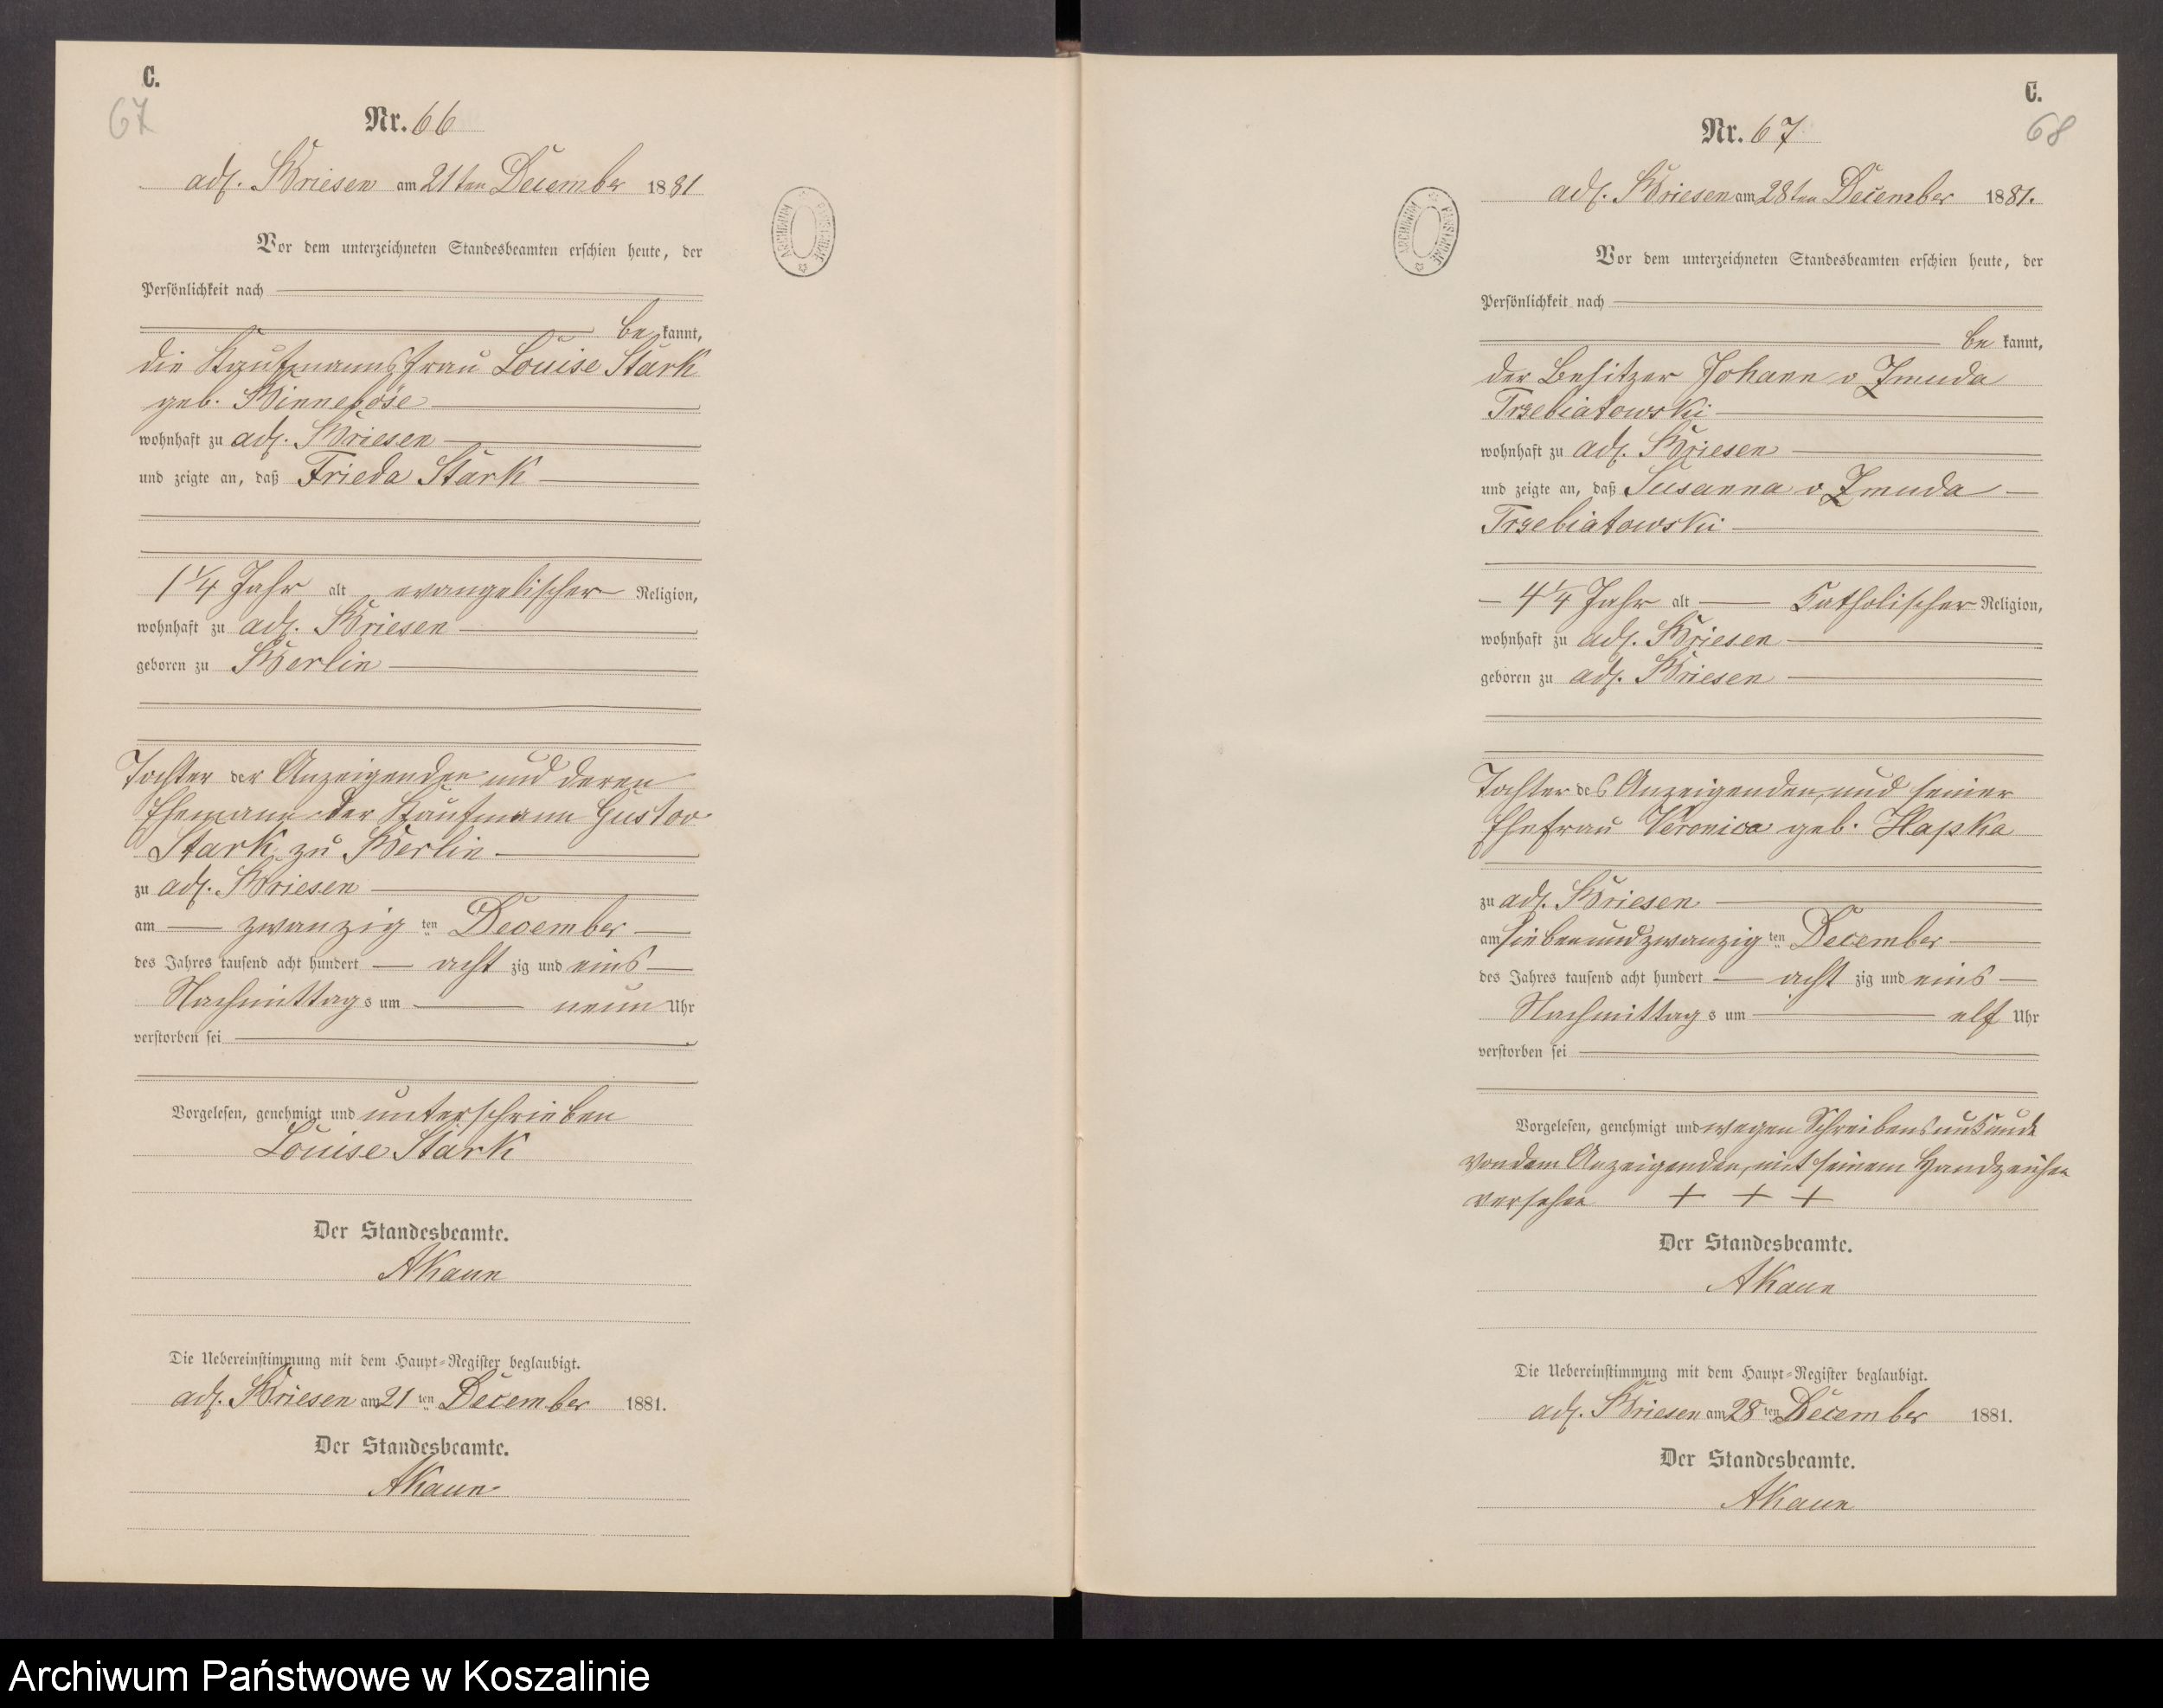 C.
67
Nr. 66
adl. Briesen am 21ten December 1881
Vor dem unterzeichneten Standesbeamten erschien heute, der
Persönlichkeit nach
be kannt,
die Kaufmannsfrau Louise Stark
geb.
wohnhaft zu adl. Briesen
und zeigte an, daß Frieda Stark
1 1/4 Jahr alt evangelischer Religion,
wohnhaft zu adl. Briesen
geboren zu Berlin
Tochter der Anzeigenden und deren
Ehemann der Kaufmann Gustav
Stark zu Berlin
zu adl. Briesen
am zwanzig ten December
des Jahres tausend acht hundert acht zig und eins
Nachmittags um neun Uhr
verstorben sei
Vorgelesen, genehmigt und unterschrieben
Louise Stark
Der Standesbeamte.
AKaun
Die Uebereinstimmung mit dem Haupt-Register beglaubigt.
adl. Briesen am 21 ten December 1881.
Der Standesbeamte.
AKaun
ARCHIWUM PAŃSTWOWE
C.
68
Nr. 67
adl. Briesen am 28ten December 1881.
Vor dem unterzeichneten Standesbeamten erschien heute, der
Persönlichkeit nach
be kannt,
der Besitzer Johann v Zmuda
Trzebiatowski
wohnhaft zu adl. Briesen
und zeigte an, daß Susanna v Zmuda
Trzebiatowski
4 1/4 Jahr alt Catholischer Religion,
wohnhaft zu adl. Briesen
geboren zu adl. Briesen
Tochter des Anzeigenden, und seiner
Ehefrau Veronica geb. Hapka
zu adl. Briesen
am siebenundzwanzig ten December
des Jahres tausend acht hundert acht zig und eins
Nachmittags um elf Uhr
verstorben sei
Vorgelesen, genehmigt und wegen Schreibensunkunde
von dem Anzeigenden, mit seinem Handzeichen
versehen + + +
Der Standesbeamte.
AKaun
Die Uebereinstimmung mit dem Haupt-Register beglaubigt.
adl. Briesen am 28 ten December 1881.
Der Standesbeamte.
AKaun
ARCHIWUM PAŃSTWOWE
Archiwum Państwowe w Koszalinie